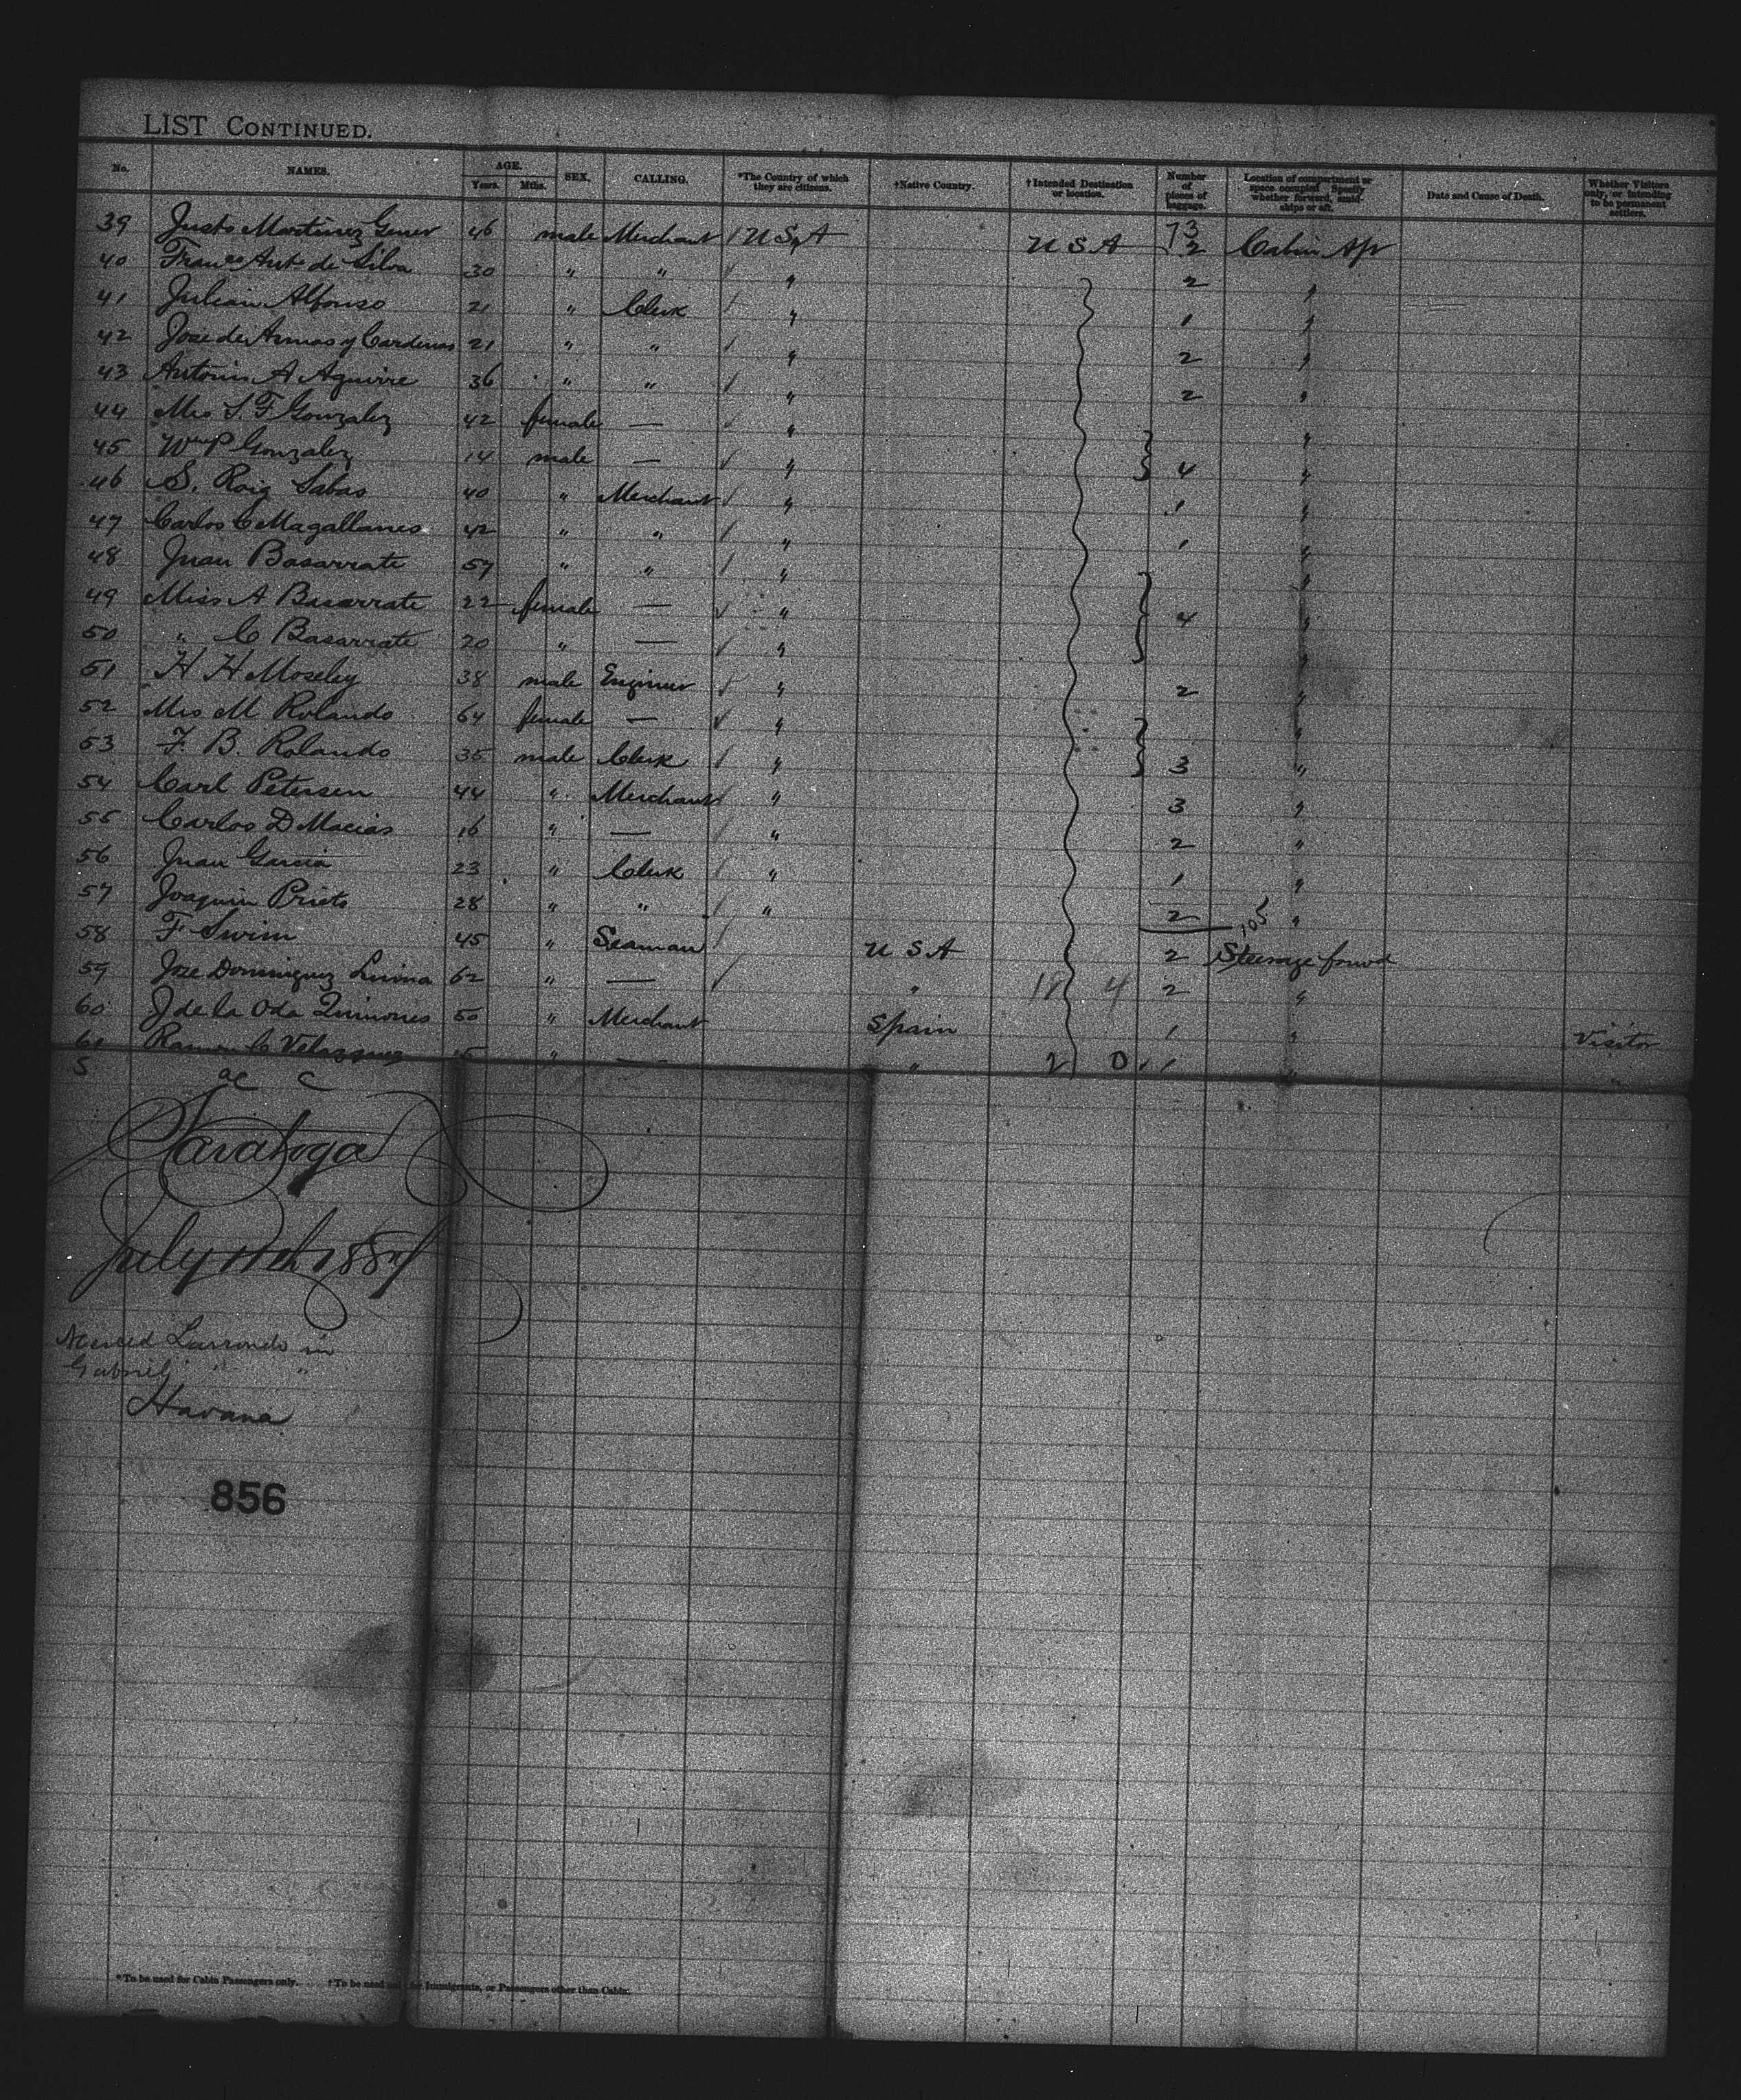 LIST CONTINUED.
No. NAMES. AGE. Years. Mths. SEX. CALLING. *The Country of which they are citizens. †Native Country. †Intended Destination or location. Number of pieces of baggage. Location of compartment or space occupied. Specify whether forward, amidships or aft. Date and Cause of Death. Whether Visitors only, or intending to be permanent settlers.
39 Justo Martinez Gener 46 male Merchant / U S A U S A 73 2 Cabin Aft
40 Franco Anto de Silva 30 " " / " 2 "
41 Julian Alfonso 21 " Clerk / " 1 "
42 Jose de Armas y Cardenas 21 " " / " 2 "
43 Antonio A Aguirre 36 " " / " 2 "
44 Mrs S. F Gonzalez 42 female — / " "
45 Wm P Gonzalez 14 male — / " 4 "
46 S. Roig Sabas 40 " Merchant / " 1 "
47 Carlos C Magallanes 42 " " / " 1 "
48 Juan Basarrate 57 " " / " "
49 Miss A Basarrate 22 female — / " 4 "
50 " C Basarrate 20 " — / " "
51 H H Moseley 38 male Engineer / " 2 "
52 Mrs M Rolando 64 female — / " "
53 F. B. Rolando 35 male Clerk / " 3 "
54 Carl Petersen 44 " Merchant / " 3 "
55 Carlos D Macias 16 " — / " 2 "
56 Juan Garcia 23 " Clerk / " 1 "
57 Joaquin Prieto 28 " " / " 2 105 "
58 F Swim 45 " Seaman / U S A 2 Steerage forwd
59 Jose Dominguez 62 " — / " 18 4 2 "
60 J de la Oda Quinones 50 " Merchant Spain 1 " Visitor
61 Ramon C Velazquez " — " 2 0 1 "
S ac C
Saratoga
July 11th 1887
Merced Larrondo in
Gabriel " "
Havana
856
*To be used for Cabin Passengers only. †To be used only for Immigrants, or Passengers other than Cabin.